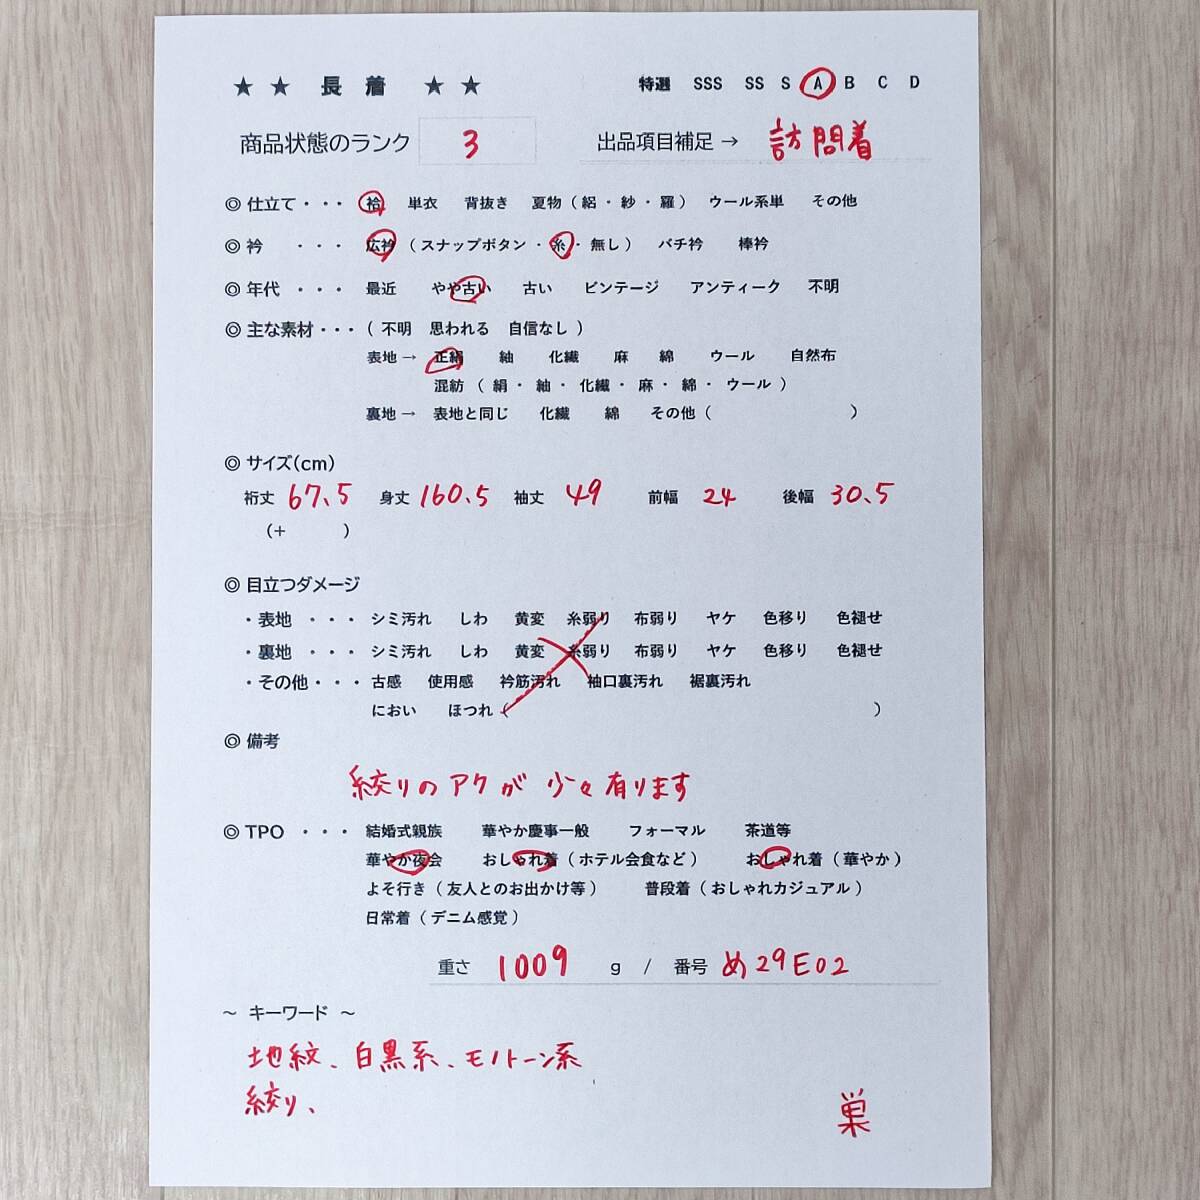 ★ ★ 長 着 ★ ★ 特選 SSS SS S A B C D
商品状態のランク 3 出品項目補足 → 訪問着
◎ 仕立て・・・ 袷 単衣 背抜き 夏物（ 絽 ・ 紗 ・ 羅 ） ウール系単 その他
◎ 衿 ・・・ 広衿 （ スナップボタン ・ 糸 ・ 無し ） バチ衿 棒衿
◎ 年代 ・・・ 最近 やや古い 古い ビンテージ アンティーク 不明
◎ 主な素材・・・（ 不明 思われる 自信なし ）
表地 → 正絹 紬 化繊 麻 綿 ウール 自然布
混紡 （ 絹 ・ 紬 ・ 化繊 ・ 麻 ・ 綿 ・ ウール ）
裏地 → 表地と同じ 化繊 綿 その他（ ）
◎ サイズ(cm)
裄丈 67.5 身丈 160.5 袖丈 49 前幅 24 後幅 30.5
(+ )
◎ 目立つダメージ
・表地 ・・・ シミ汚れ しわ 黄変 糸弱り 布弱り ヤケ 色移り 色褪せ
・裏地 ・・・ シミ汚れ しわ 黄変 糸弱り 布弱り ヤケ 色移り 色褪せ
・その他・・・ 古感 使用感 衿筋汚れ 袖口裏汚れ 裾裏汚れ
におい ほつれ（ ）
◎ 備考
絞りのアクが少々有ります
◎ TPO ・・・ 結婚式親族 華やか慶事一般 フォーマル 茶道等
華やか夜会 おしゃれ着（ ホテル会食など ） おしゃれ着（ 華やか ）
よそ行き（ 友人とのお出かけ等 ） 普段着（ おしゃれカジュアル ）
日常着（ デニム感覚 ）
重さ 1009 g / 番号 め29E02
～ キーワード ～
地紋、白黒系、モノトーン系
絞り、
巣